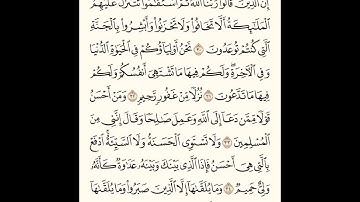 إِنَّ ٱلَّذِينَ قَالُوا۟ رَبُّنَا ٱللَّهُ ثُمَّ ٱسْتَقَٰمُوا۟ تَتَنَزَّلُ عَلَيْهِمُ
ٱلْمَلَٰٓئِكَةُ أَلَّا تَخَافُوا۟ وَلَا تَحْزَنُوا۟ وَأَبْشِرُوا۟ بِٱلْجَنَّةِ
ٱلَّتِى كُنتُمْ تُوعَدُونَ ٣٠ نَحْنُ أَوْلِيَآؤُكُمْ فِى ٱلْحَيَوٰةِ ٱلدُّنْيَا
وَفِى ٱلْءَاخِرَةِ وَلَكُمْ فِيهَا مَا تَشْتَهِىٓ أَنفُسُكُمْ وَلَكُمْ
فِيهَا مَا تَدَّعُونَ ٣١ نُزُلًا مِّنْ غَفُورٍ رَّحِيمٍ ٣٢ وَمَنْ أَحْسَنُ
قَوْلًا مِّمَّن دَعَآ إِلَى ٱللَّهِ وَعَمِلَ صَٰلِحًا وَقَالَ إِنَّنِى مِنَ
ٱلْمُسْلِمِينَ ٣٣ وَلَا تَسْتَوِى ٱلْحَسَنَةُ وَلَا ٱلسَّيِّئَةُ ٱدْفَعْ
بِٱلَّتِى هِىَ أَحْسَنُ فَإِذَا ٱلَّذِى بَيْنَكَ وَبَيْنَهُۥ عَدَٰوَةٌ كَأَنَّهُۥ
وَلِىٌّ حَمِيمٌ ٣٤ وَمَا يُلَقَّىٰهَآ إِلَّا ٱلَّذِينَ صَبَرُوا۟ وَمَا يُلَقَّىٰهَآ